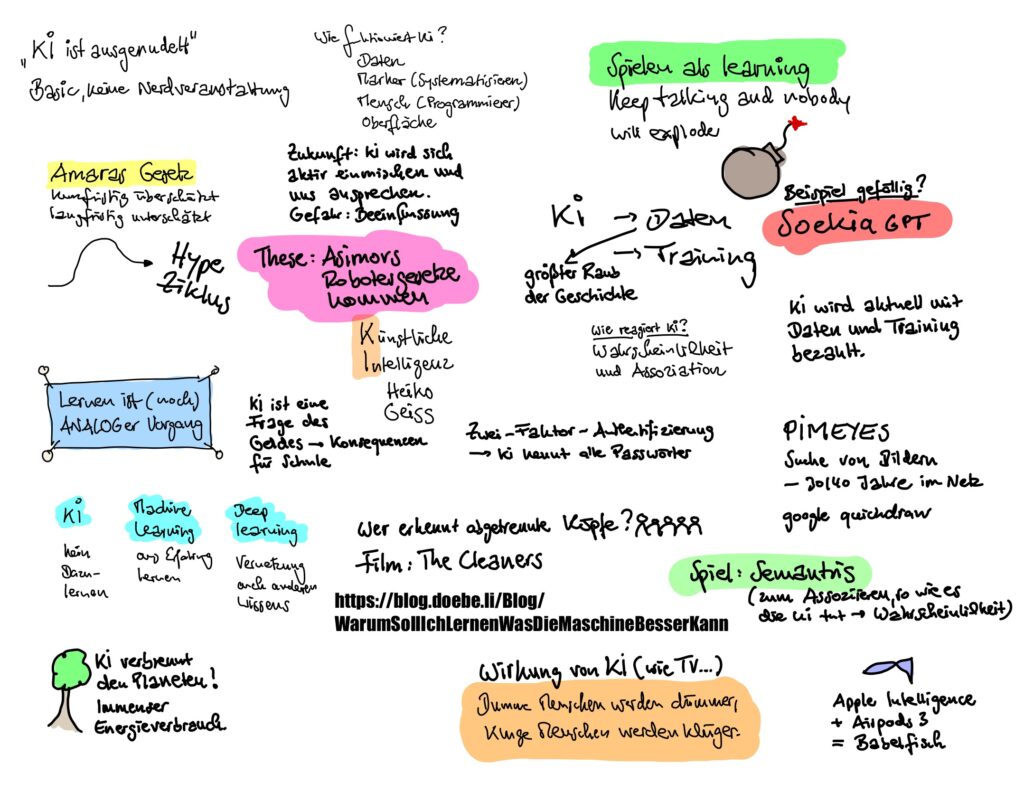 „Ki ist ausgenudelt"
Basic, keine Nerdveranstaltung
Wie funktioniert Ki?
Daten
Marker (Systematisieren)
Mensch (Programmierer)
Oberfläche
Spielen als learning
Keep talking and nobody
will explode
Amaras Gesetz
kurzfristig überschätzt
langfristig unterschätzt
Hype
Ziklus
Zukunft: Ki wird sich
aktiv einmischen und
uns ansprechen.
Gefahr: Beeinflussung
These: Asimovs
Robotergesetze
kommen
Ki → Daten
→ Training
größter Raub
der Geschichte
Beispiel gefällig?
Soekia GPT
Ki wird aktuell mit
Daten und Training
bezahlt.
Künstliche
Intelligenz
Heiko
Geiss
Wie reagiert Ki?
Wahrscheinlichkeit
und Assoziation
Lernen ist (noch)
ANALOGer Vorgang
Ki ist eine
Frage des
Geldes → Konsequenzen
für Schule
Zwei-Faktor-Authentifizierung
→ Ki kennt alle Passwörter
PIMEYES
Suche von Bildern
– 30/40 Jahre im Netz
google quickdraw
Ki
kein
Dazu-
lernen
Machine
learning
aus Erfahrung
lernen
Deep
learning
Vernetzung
auch anderen
Wissens
Wer erkennt abgetrennte Köpfe?
Film: The Cleaners
https://blog.doebe.li/Blog/
WarumSollIchLernenWasDieMaschineBesserKann
Spiel: Semantris
(zum Assoziieren, so wie es
die Ki tut → Wahrscheinlichkeit)
Ki verbrennt
den Planeten!
Immenser
Energieverbrauch
Wirkung von Ki (wie TV...)
Dumme Menschen werden dümmer,
Kluge Menschen werden klüger.
Apple Intelligence
+ Airpods 3
= Babelfisch